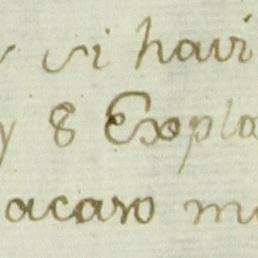 si havi
y 8 Expla
acaso m